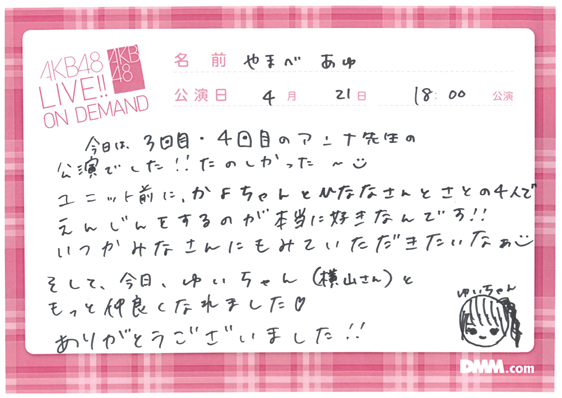 AKB48
LIVE!!
ON DEMAND
AKB
48
名前 やまべ あゆ
公演日 4月 21日 18:00 公演
今日は、3回目・4回目のアンナ先生の
公演でした!!たのしかった〜
ユニット前に、かよちゃんとひななさんとさとの4人で
えんじんをするのが本当に好きなんです!!
いつかみなさんにもみていただきたいなぁ
そして、今日、ゆいちゃん(横山さん)と
もっと仲良くなれました♡
ありがとうございました!!
ゆいちゃん
DMM.com